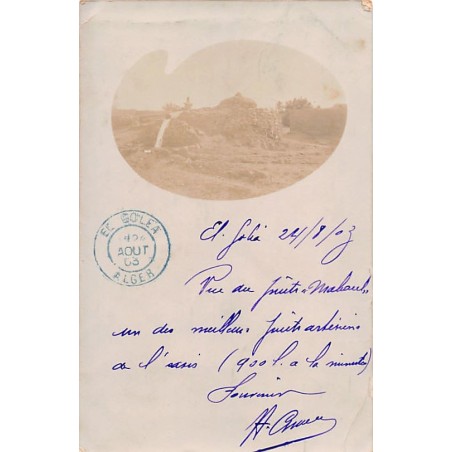 EL GOLEA
AOUT
03
ALGER
El Goléa 24/8/03
Vue du puits "
un des meilleurs puits artésiens
de l'oasis (900 l. à la minute)
Souvenir